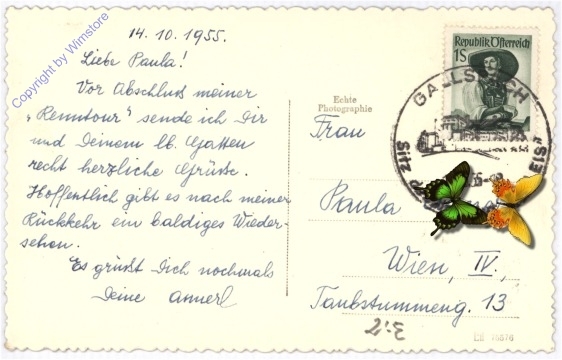 14.10.1955.
Liebe Paula!
Vor Abschluß meiner
„Renntour" sende ich Dir
und Deinem lb. Gatten
recht herzliche Grüße.
Hoffentlich gibt es nach meiner
Rückkehr ein baldiges Wieder-
sehen.
Es grüßt Dich nochmals
Deine Annerl
Echte
Photographie
Republik Österreich
1S
GALLSPACH
Sitz
EIS"
Frau
Paula
Wien, IV.,
Taubstummeng. 13
Copyright by Wimstore